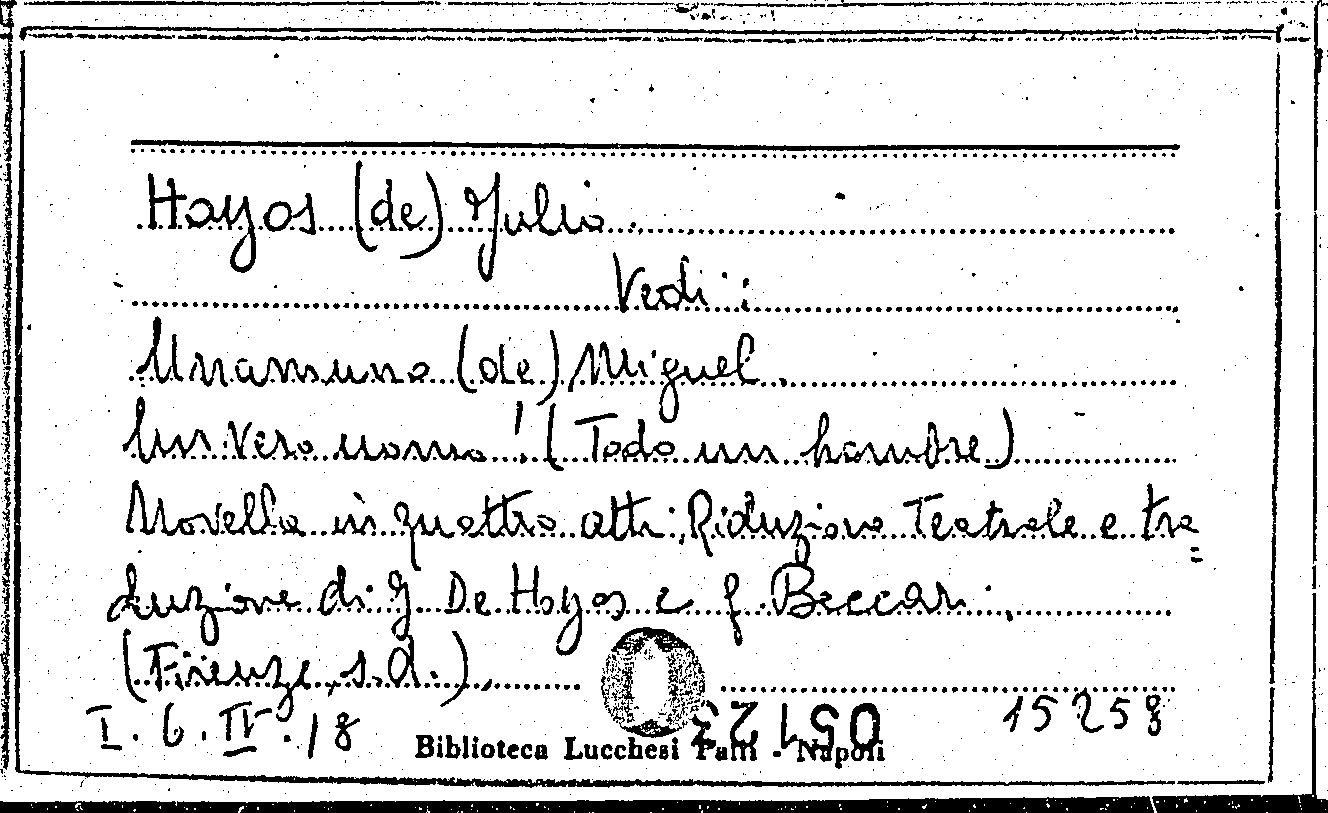 Hoyos (de) Julio.
Vedi:
Unamuno (de) Miguel.
Un vero uomo! (Todo un hombre)
Novella in quattro atti; Riduzione Teatrale e tra=
duzione di G. De Hoyos e G. Beccari.
(Firenze, s.d.).
I. 6. IV. 18
15258
051 23
Biblioteca Lucchesi Palli - Napoli